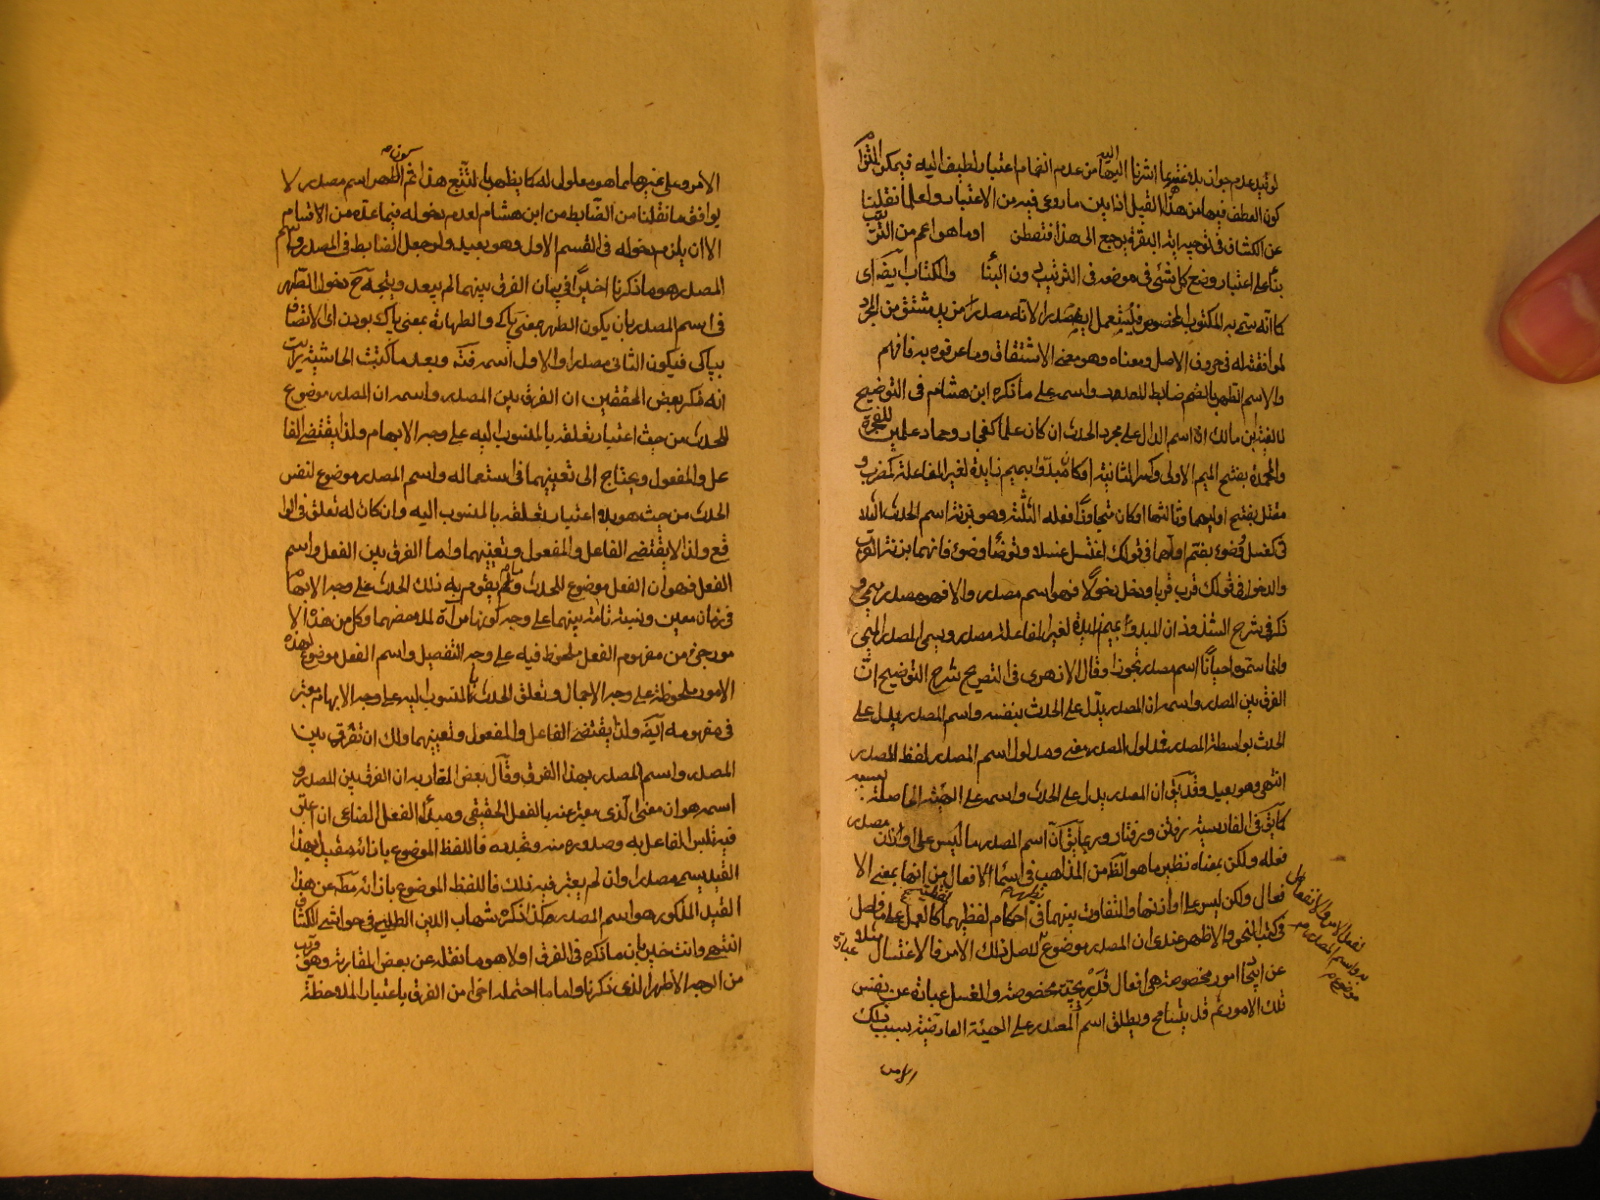 لوتيد عدم جواز بدء غيرها اشرنا اليها من عدم انفهام اعتبار تطبيق اليه فيمكن
كون العطف فيها من هذا القبيل اذا بين ما روعى فيه من الاعتبار واعلم ما نقلنا
عن الكشاف فى توجيه اية البقرة يرجع الى هذا فتفطن او ما هو اعم من
بناء على اعتبار وضع كل شئ فى موضعه فى الترتيب دون البنا والكتاب اى
كما انه يسمى به المكتوب المخصوص فليستعمل ايضا مصدرا لانه مصدر مزيد مشتق من المجرد
لموافقته له فى حروف الاصل ومعناه وهو معنى الاشتقاق وما عرفوه به فافهم
والاسم الطهر بالضم ضابط للمصدر واسمه على ما ذكره ابن هشام فى التوضيح
لالفية ابن مالك ان الاسم الدال على مجرد الحدث ان كان علما كفجار وحماد علمين للفجرة
والمحمدة بفتح الميم الاولى وكسر الثانية او كان مبدوا بميم زايدة لغير المفاعلة كمضرب و
مقتل بفتح اولهما وثالثهما او كان متجاوزا فعله الثلثة وهو بزنة اسم الحدث الثلا
ثى كغسل وضوء بضم اولهما فى قولك اغتسل غسلا وتوضأ وضوء فانهما بزنة القرب
والدخول فى قولك قرب قربا ودخل دخولا فهو اسم مصدر والا فهو مصدر
ذكر فى شرح الشذور ان المبدوء بميم زايدة لغير المفاعلة مصدر ويسمى المصدر الميمى
وانما سموه احيانا اسم مصدر تجوزا وقال الازهرى فى التصريح شرح التوضيح ان
الفرق بين المصدر واسمه ان المصدر يدل على الحدث بنفسه واسم المصدر يدل على
الحدث بواسطة المصدر فمدلول المصدر معنى ومدلول اسم المصدر لفظ المصدر
انتهى وهو بعيد وقد يق ان المصدر يدل على الحدث واسمه على الهيئة الحاصلة بسببه
كما يق فى الفارسية رفتن ورفتار وربما يق ان اسم المصدر ما ليس على اوزان مصدر
فعله ولكن بمعناه نظير ما هو الظ من المذاهب فى اسماء الافعال من انها بمعنى الا
فعال ولكن ليس على اوزانها والتفاوت بينهما فى احكام لفظيهما كالعمل على ما فصل
فى كتب النحو والاظهر عندى ان المصدر موضوع لاصل ذلك الامر فالاغتسال مثلا عبارة
عن ايتا امور مخصوصة هى افعال مخصوصة والغسل عبارة عن نفس
تلك الامور ثم قد يتسامح ويطلق اسم المصدر على الهيئة العارضة بسبب تلك
الامر
الامر وعلى غيرها مما هو معلول له كما يظهر بالتتبع هذا ثم كون الطهر اسم مصدر لا
يوافق ما نقلنا من الضابط من ابن هشام لعدم دخوله فيما عده من الاقسام
الا ان يلزم دخوله فى القسم الاول وهو بعيد ولو جعل الضابط فى المصدر واسم
المصدر هو ما ذكرنا اخيرا فى بيان الفرق بينهما لم يبعد ويتجه ح دخول الطهر
فى اسم المصدر بان يكون الطهر بمعنى پاكى والطهارة بمعنى پاك بودن اى الاتصاف
بپاكى فيكون الثانى مصدرا والاول اسمه فت وبعد ما كتبت الحاشية رايت
انه ذكر بعض المحققين ان الفرق بين المصدر واسمه ان المصدر موضوع
للحدث من حيث اعتبار تعلقه بالمنسوب اليه على وجه الابهام ولذا يقتضى الفا
عل والمفعول ويحتاج الى تعيينهما فى استعماله واسم المصدر موضوع لنفس
الحدث من حيث هو بلا اعتبار تعلقه بالمنسوب اليه وان كان له تعلق فى الوا
قع ولذا لا يقتضى الفاعل والمفعول وتعيينهما واما الفرق بين الفعل واسم
الفعل فهو ان الفعل موضوع للحدث ولما يقوم به ذلك الحدث على وجه الابهام
فى زمان معين ونسبة تامة بينهما على وجه كونها مراة لملاحظتهما وكل من هذه الا
مور جزء من مفهوم الفعل ملحوظ فيه على وجه التفصيل واسم الفعل موضوع لهذه
الامور ملحوظة على وجه الاجمال وتعلق الحدث بالمنسوب اليه على وجه الابهام معتبر
فى مفهومه ايض ولذا يقتضى الفاعل والمفعول وتعيينهما ولك ان تفرق بين
المصدر واسم المصدر بهذا الفرق وقال بعض المقاربة ان الفرق بين المصدر و
اسمه هو ان معنى الذى يعبر عنه بالفعل الحقيقى ومبدأ الفعل الصناعى ان اعتبر
فيه تلبس الفاعل به وصدوره منه وتجدده فاللفظ الموضوع بازائه مقيدا بهذا
القيد يسمى مصدرا وان لم يعتبر فيه ذلك فاللفظ الموضوع بازائه مط عن هذا
القيد المذكور هو اسم المصدر هكذا ذكره شهاب الدين فى حواشى الكشاف
انتهى وانت خبير بان ما ذكره فى الفرق اولا هو ما نقله عن بعض المقاربة وهو قريب
من الوجه الاظهر الذى ذكرنا واما ما احتمله اخيرا من الفرق باعتبار الملاحظة